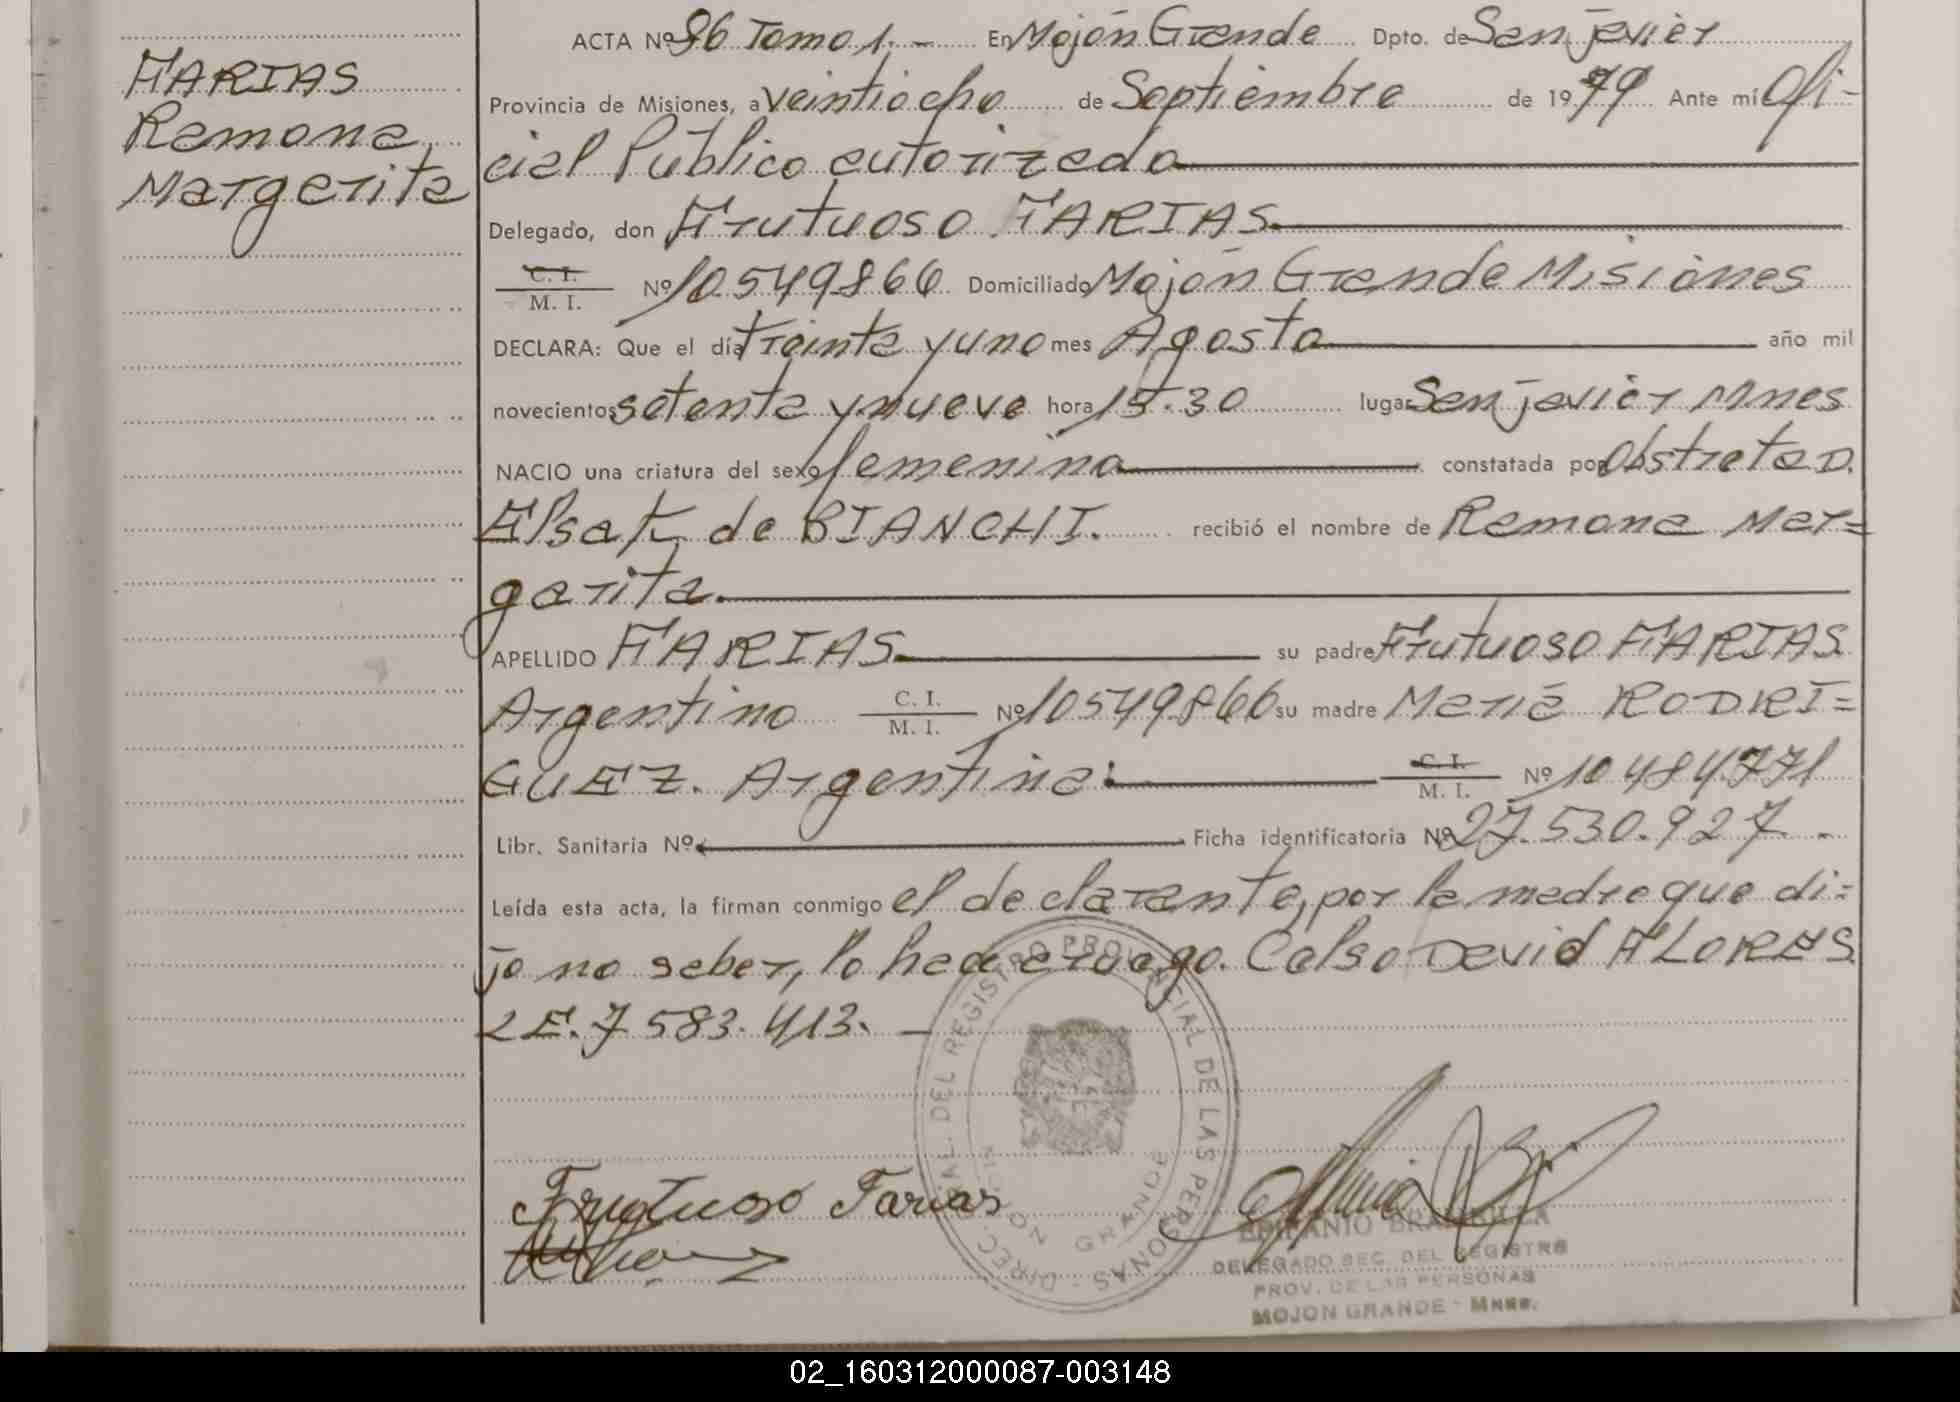 FARIAS
Ramona
Margarita
ACTA Nº 96 Tomo 1. - En Mojón Grande Dpto. de San javier
Provincia de Misiones, a veintiocho de Septiembre de 1979 Ante mí Ofi-
cial Público autorizado
Delegado, don Frutuoso FARIAS
C. I. / M. I. Nº 10549866 Domiciliado Mojón Grande Misiones
DECLARA: Que el día treinta y uno mes Agosto año mil
novecientos setenta y nueve hora 15.30 lugar San javier Mnes
NACIO una criatura del sexo femenino constatada por Obstreta D.
Elsa K. de BIANCHI. recibió el nombre de Ramona Mar=
garita.
APELLIDO FARIAS su padre Frutuoso FARIAS
Argentino C. I. / M. I. Nº 10549866 su madre María RODRI=
GUEZ. Argentina: C. I. / M. I. Nº 10484771
Libr. Sanitaria Nº Ficha identificatoria Nº 27.530.927.
Leída esta acta, la firman conmigo el declarante, por la madre que di=
jo no saber, lo hace a ruego. Celso David FLORES
LE. 7583.413. -
DIREC. GRAL. DEL REGISTRO PROVINCIAL DE LAS PERSONAS -
MOJON GRANDE
Frutuoso Farias
EPIFANIO
DELEGADO SEC. DEL REGISTRO
PROV. DE LAS PERSONAS
MOJON GRANDE - Mnes.
02_160312000087-003148